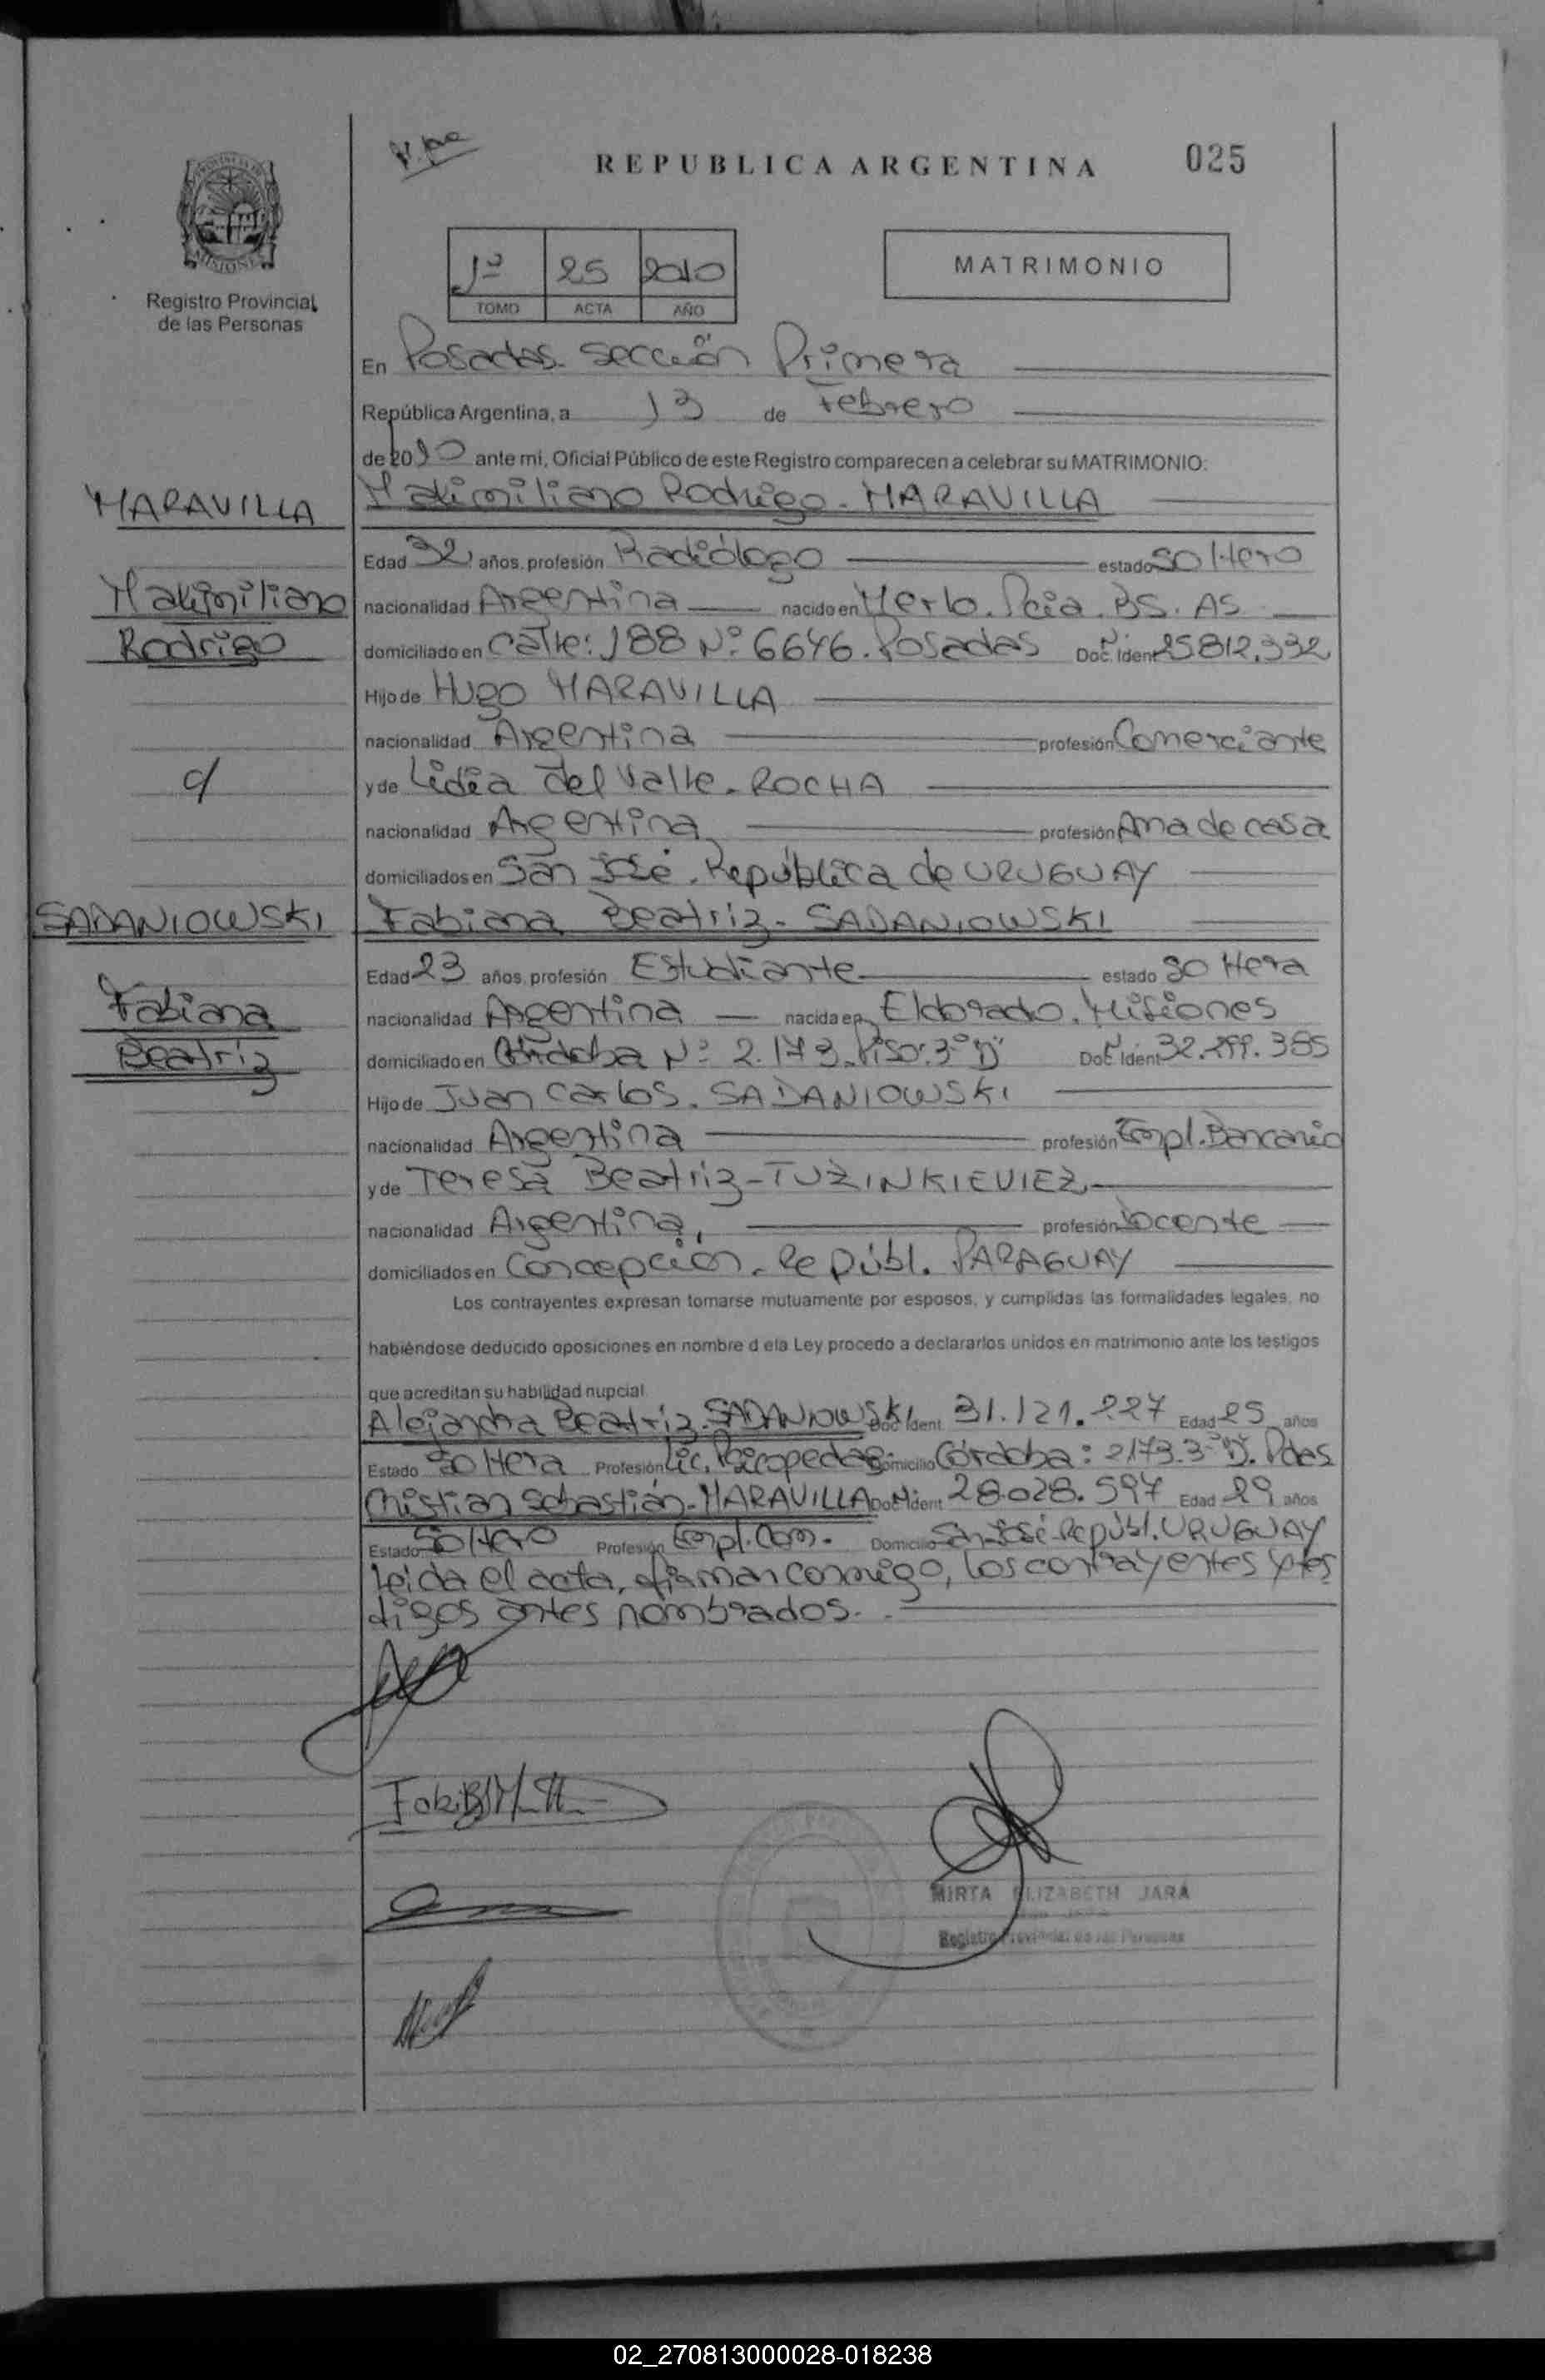 REPUBLICA ARGENTINA 025
PROVINCIA DE
MISIONES
Registro Provincial
de las Personas
1º 25 2010
TOMO ACTA AÑO
MATRIMONIO
En Posadas. Sección Primera
República Argentina, a 13 de Febrero
de 2010 ante mi, Oficial Público de este Registro comparecen a celebrar su MATRIMONIO:
MARAVILLA
Maximiliano Rodrigo. MARAVILLA
Edad 32 años, profesión Radiólogo estado Soltero
Maximiliano
nacionalidad Argentina nacido en Merlo. Pcia. BS. AS
Rodrigo
domiciliado en Calle: 188 Nº 6646. Posadas Doc. Ident 25.812.332
Hijo de Hugo MARAVILLA
nacionalidad Argentina profesión Comerciante
c/
y de Lidia del Valle. ROCHA
nacionalidad Argentina profesión Ama de casa
domiciliados en San José. República de URUGUAY
SADANIOWSKI
Fabiana Beatriz - SADANIOWSKI
Edad 23 años, profesión Estudiante estado Soltera
Fabiana
nacionalidad Argentina nacida en Eldorado. Misiones
Beatriz
domiciliado en Córdoba Nº 2.173. Piso: 3º "D" Doc. Ident 32.299.385
Hijo de Juan Carlos. SADANIOWSKI
nacionalidad Argentina profesión Empl. Bancario
y de Teresa Beatriz - TUZINKIEVIEZ
nacionalidad Argentina, profesión Docente
domiciliados en Concepción. Repúbl. PARAGUAY
Los contrayentes expresan tomarse mutuamente por esposos, y cumplidas las formalidades legales, no
habiéndose deducido oposiciones en nombre d ela Ley procedo a declararlos unidos en matrimonio ante los testigos
que acreditan su habilidad nupcial
Alejandra Beatriz. SADANIOWSKI Doc Ident 31.121.227 Edad 25 años
Estado Soltera Profesión Lic. Psicopedag Domicilio Córdoba: 2173.3º "D". Pdas
Christian Sebastián - MARAVILLA Doc Ident 28.028.597 Edad 29 años
Estado Soltero Profesión Empl. Com. Domicilio San José Repúbl. URUGUAY
Leida el acta, firman conmigo, los contrayentes y tes
tigos antes nombrados.
MIRTA ELIZABETH JARA
Registro Provincial de las Personas
02_270813000028-018238